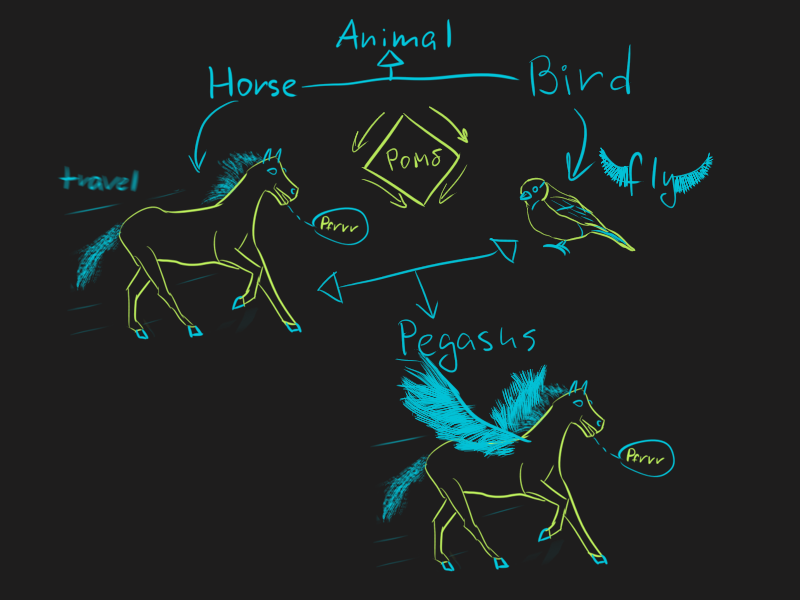 Animal
Horse
Bird
Ромб
travel
fly
Pfrrr
Pegasus
Pfrrr